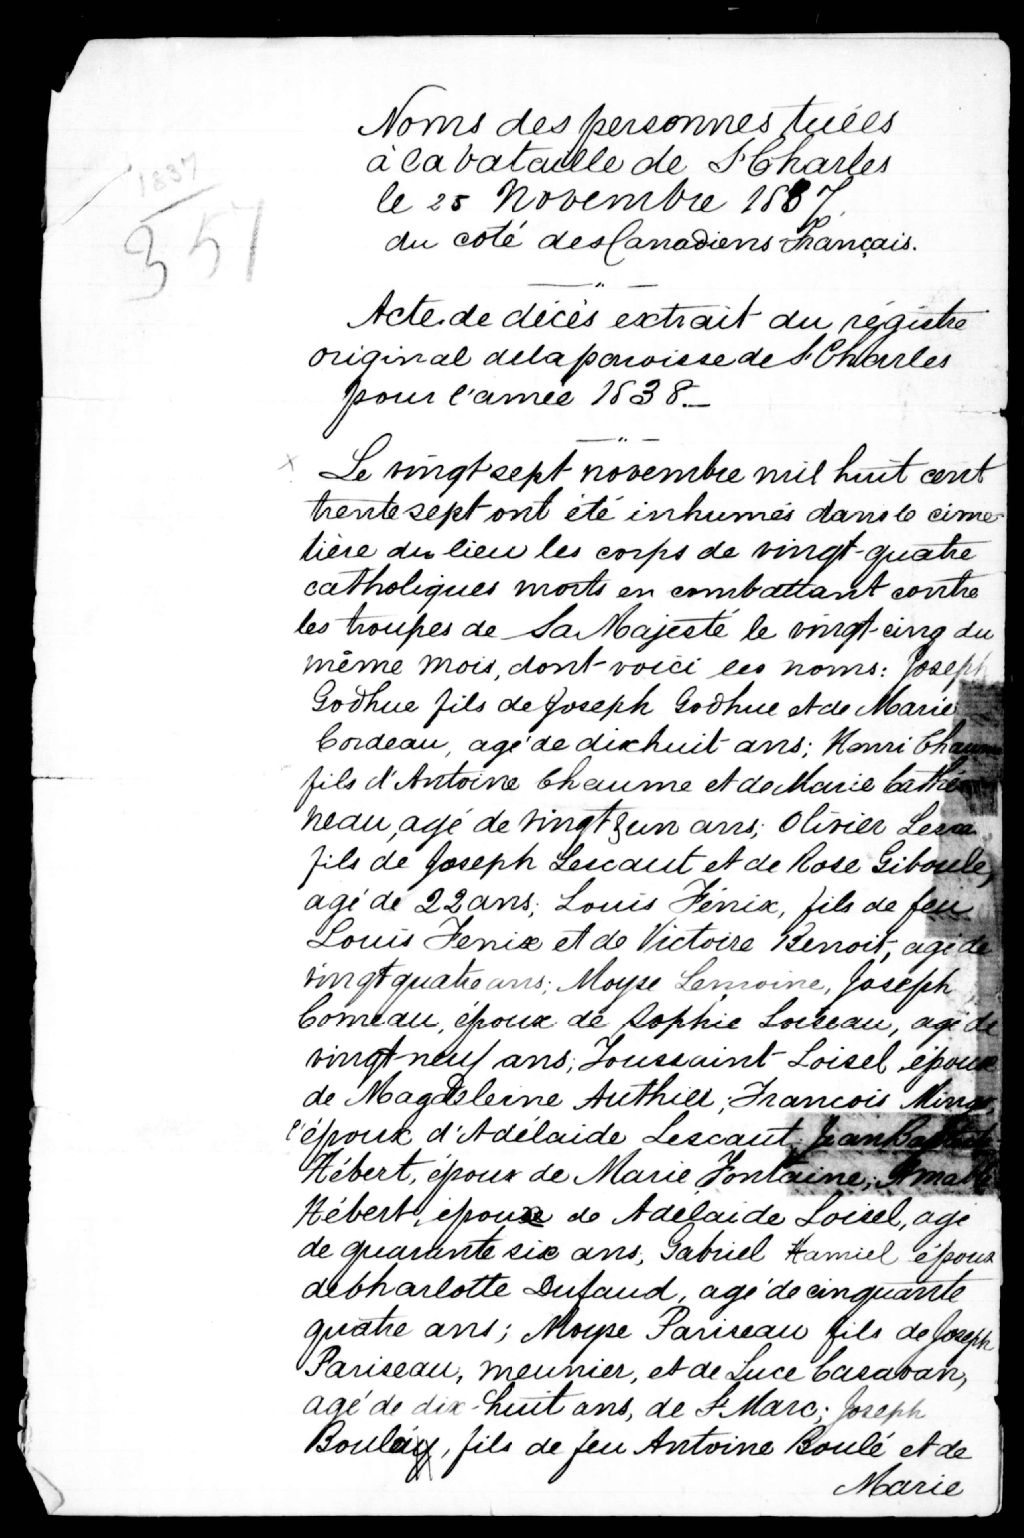 Noms des personnes tuées
à la bataille de St Charles
le 25 Novembre 1837,
du coté des Canadiens Français.
1837
357
Acte de décès extrait du régistre
original de la paroisse de St Charles
pour l'année 1838.
x Le vingt sept novembre mil huit cent
trente sept ont été inhumés dans le cime-
tière du lieu les corps de vingt-quatre
catholiques morts en combattant contre
les troupes de Sa Majesté le vingt-cinq du
même mois, dont voici les noms: Joseph
Godhue fils de Joseph Godhue et de Marie
Cordeau, agé de dix huit ans; Henri Chaume
fils d'Antoine Chaume et de Marie
neau, agé de vingt & un ans; Olivier
fils de Joseph Lescaut et de Rose Giboule,
agé de 22 ans; Louis Fénix, fils de feu
Louis Fenix et de Victoire Benoit, agé de
vingt quatre ans; Moyse Lemoine, Joseph
Comeau, époux de Sophie Loiseau, agé de
vingt neuf ans; Toussaint Loisel époux
de Magdeleine Authier, Francois
l'époux d'Adélaide Lescaut; Jean Baptiste
Hébert, époux de Marie Fontaine;
Hébert, époux de Adelaide Loisel, agé
de quarante six ans, Gabriel Hamel époux
de Charlotte Dufaud, agé de cinquante
quatre ans; Moyse Pariseau fils de Joseph
Pariseau, meunier, et de Luce Casavan,
agé de dix-huit ans, de St Marc; Joseph
Boulé, fils de feu Antoine Boulé et de
Marie